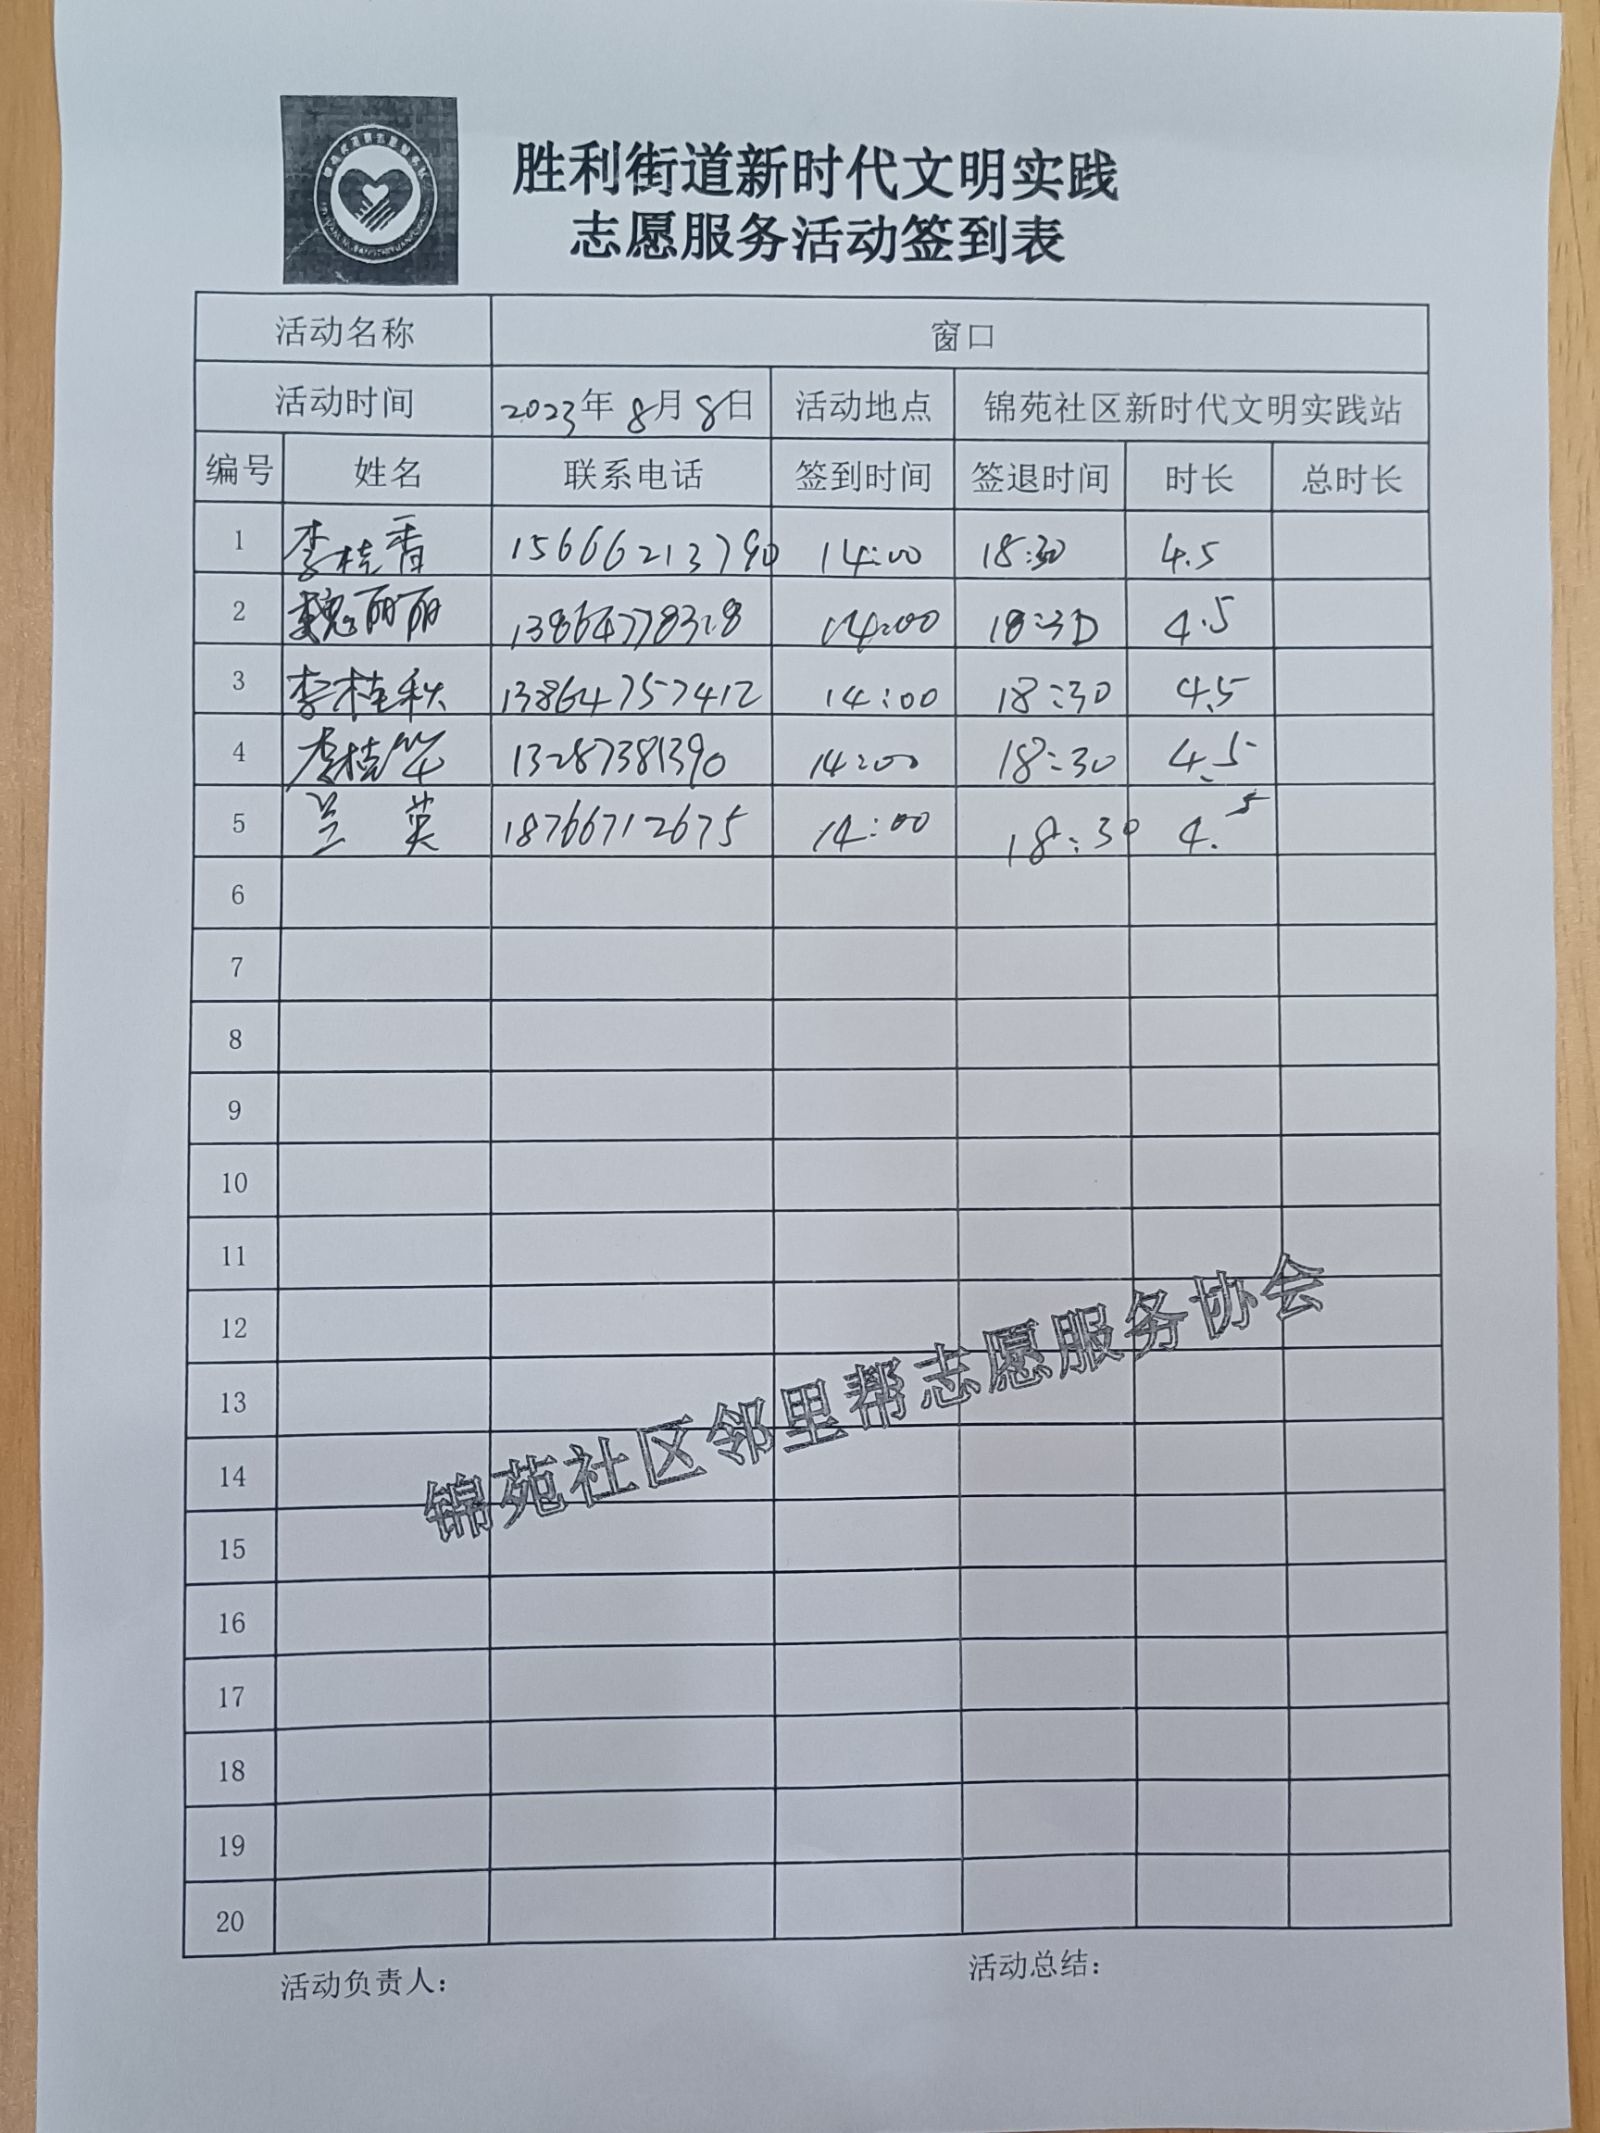 胜利街道新时代文明实践
志愿服务活动签到表
活动名称 窗口
活动时间 2023年8月8日 活动地点 锦苑社区新时代文明实践站
编号 姓名 联系电话 签到时间 签退时间 时长 总时长
1 李桂香 15666213790 14:00 18:30 4.5
2 魏丽丽 13864778328 14:00 18:30 4.5
3 李桂秋 13864757412 14:00 18:30 4.5
4 李桂华 13287381390 14:00 18:30 4.5
5 兰英 18766712675 14:00 18:30 4.5
6
7
8
9
10
11
12
13
14
15
16
17
18
19
20
锦苑社区邻里帮志愿服务协会
活动负责人： 活动总结：